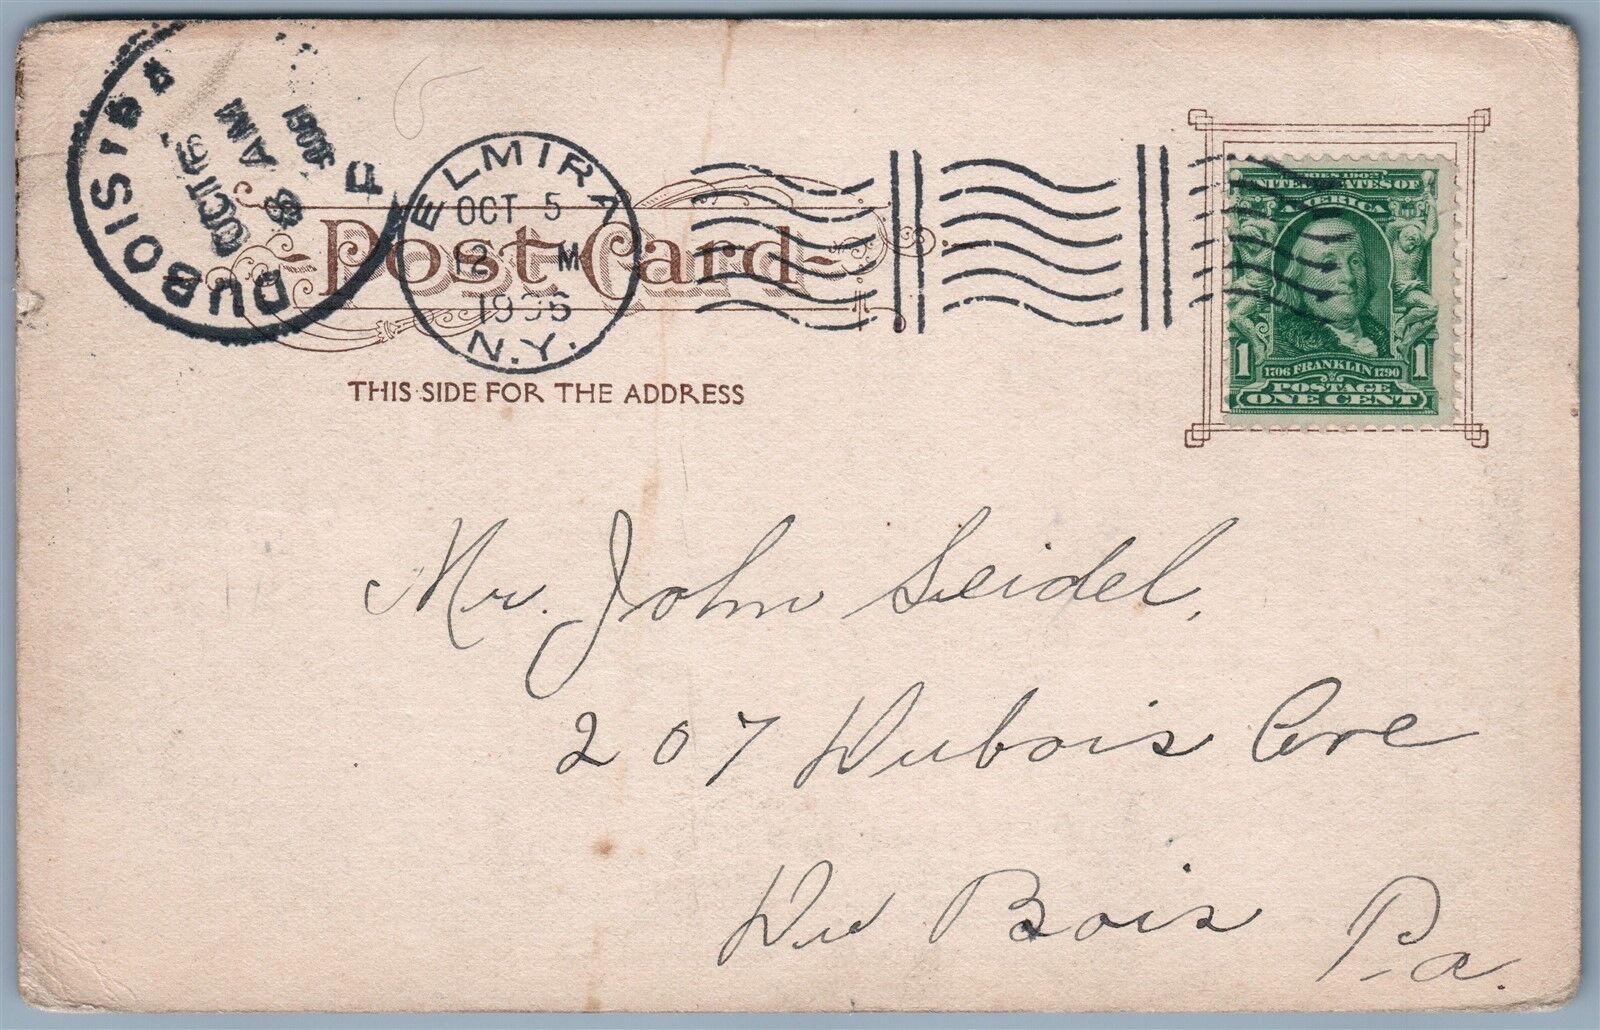 DUBOIS PA
OCT 6
8 AM
1906
F
ELMIRA
OCT 5
12 M
1906
N.Y.
Post Card
THIS SIDE FOR THE ADDRESS
SERIES 1902
UNITED STATES OF
AMERICA
1 1706 FRANKLIN 1790 1
POSTAGE
ONE CENT
Mr. John Seidel,
207 Dubois Ave
Du Bois Pa.